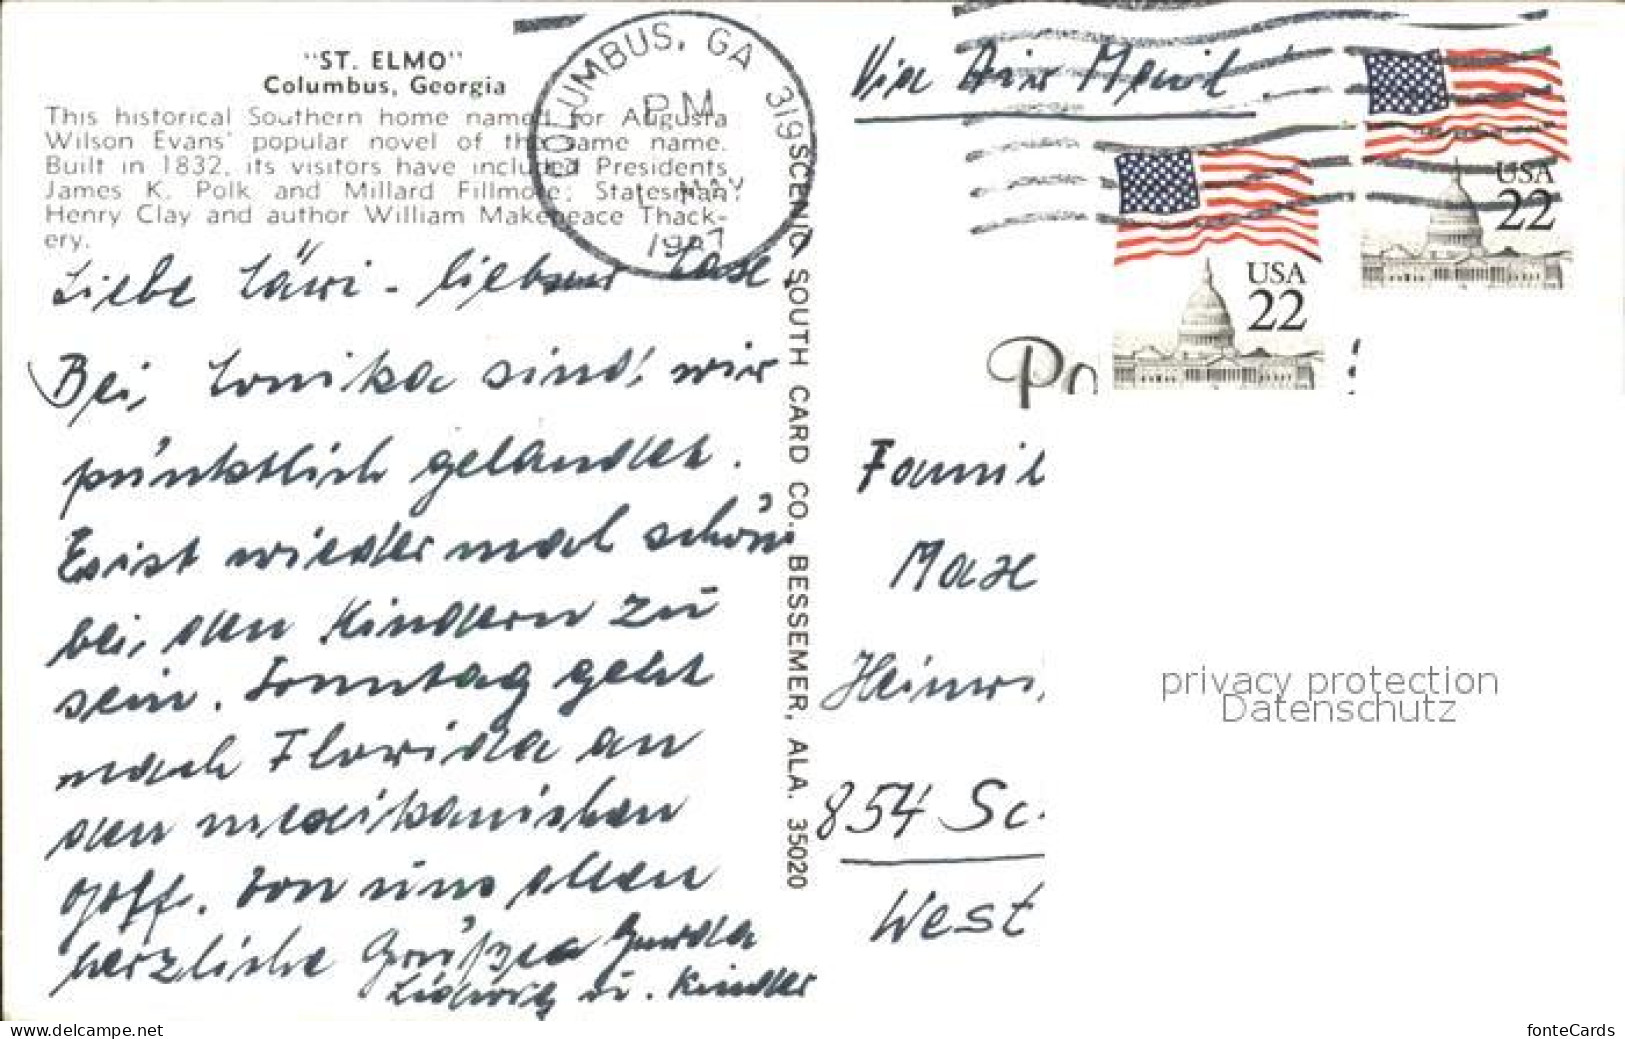 "ST. ELMO"
Columbus, Georgia
This historical Southern home named for Augusta
Wilson Evans' popular novel of the same name.
Built in 1832, its visitors have included Presidents
James K. Polk and Millard Fillmore; Statesman
Henry Clay and author William Makepeace Thack-
ery.
COLUMBUS, GA 319
PM
1 MAY
1987
Liebe
Bei sind wir
pünktlich gelandet.
Es ist wieder mal schön
bei den Kindern zu
sein. Sonntag geht
nach Florida an
den mexikanischen
Golf. Von uns allen
herzliche Grüße Gerda
Ludwig u. Kinder
SCENIC SOUTH CARD CO. BESSEMER, ALA. 35020
Via Air Mail
USA
22
USA
22
Po
Famil
Max
Heinr
854 Sc
West
privacy protection
Datenschutz
www.delcampe.net
fonteCards